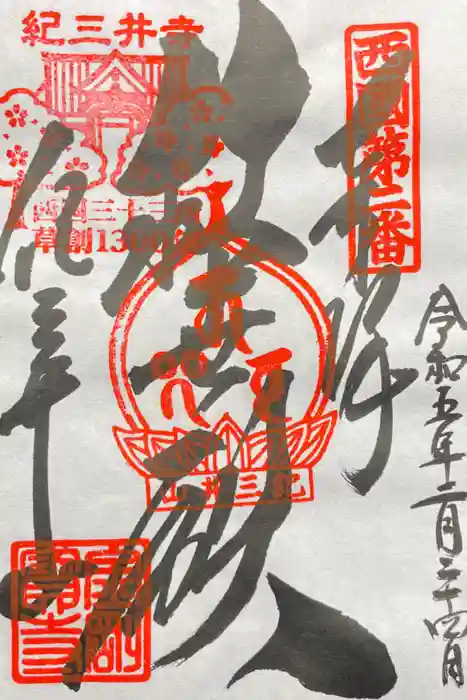 西國第二番
奉拝
令和五年二月二十四日
救世殿
紀三井山
紀三井寺
西国三十三所
草創1300年
紀三井寺
金剛
寶寺